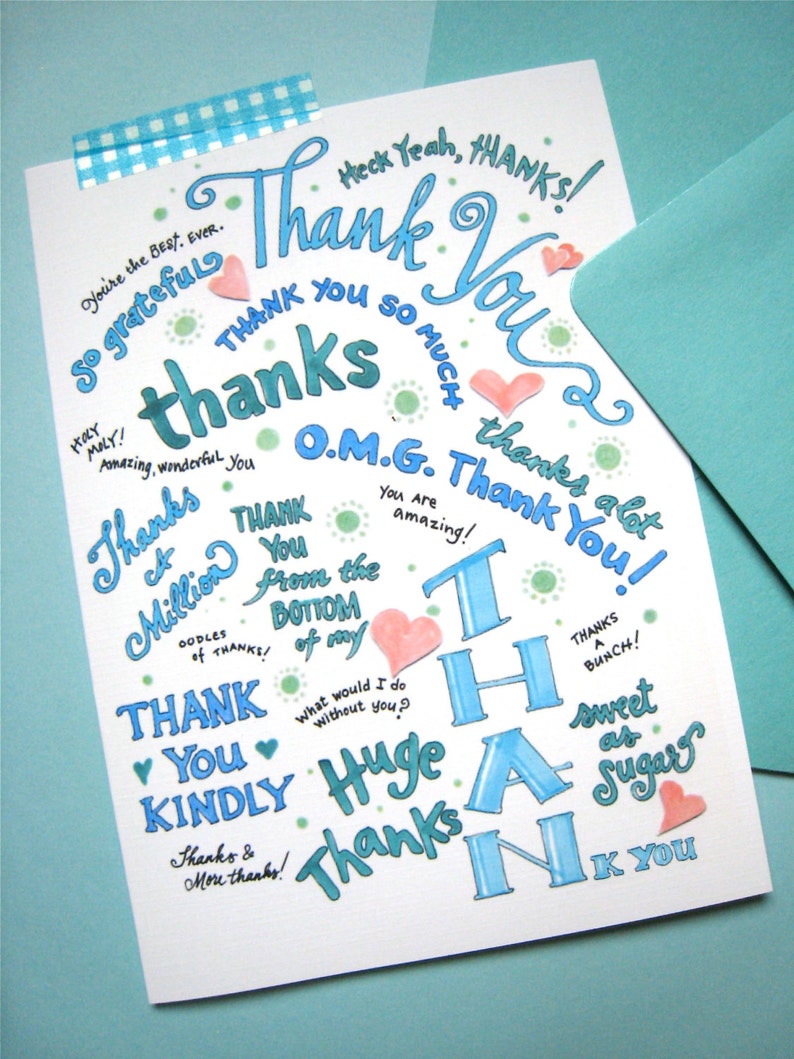 Heck Yeah, THANKS!
Thank You
You're the BEST. EVER.
so grateful
THANK YOU SO MUCH
thanks
HOLY
MOLY!
Amazing, wonderful you
O.M.G. Thank You!
thanks a lot
You are
amazing!
Thanks
A
Million
THANK
YOU
from the
BOTTOM
of my
OODLES
of THANKS!
THANKS
A
BUNCH!
What would I do
without you?
THANK
YOU
KINDLY
Huge
Thanks
sweet
as
sugar
Thanks &
More thanks!
T
H
A
N
K YOU